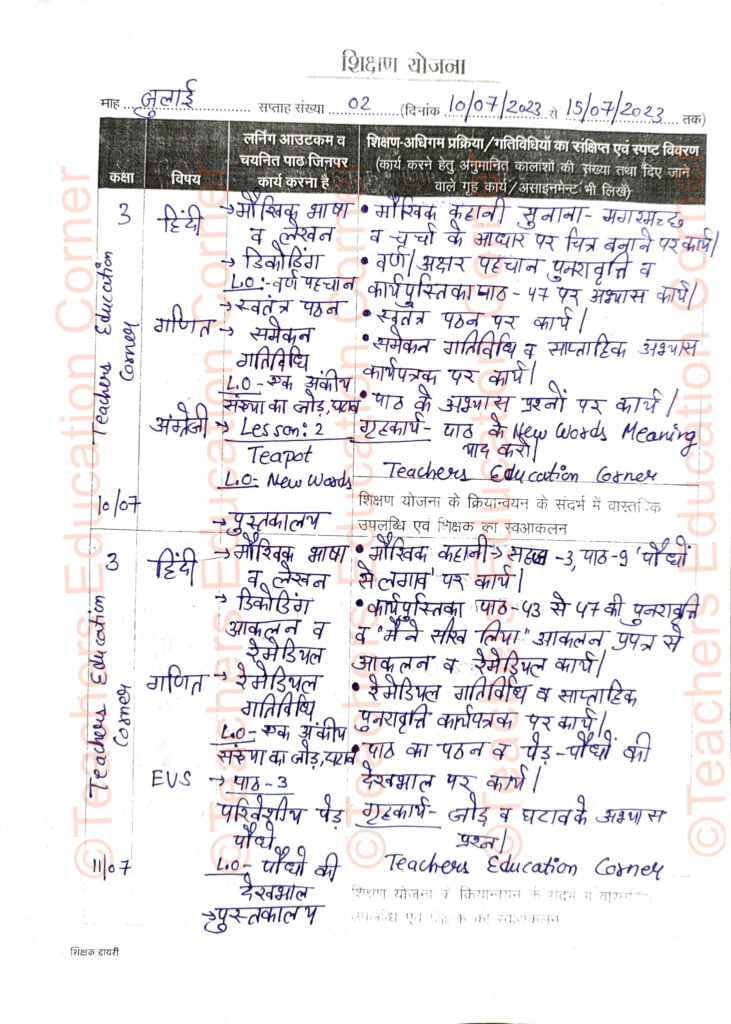 शिक्षण योजना
माह जुलाई सप्ताह संख्या 02 (दिनांक 10/07/2023 से 15/07/2023 तक)
कक्षा
विषय
लर्निंग आउटकम व
चयनित पाठ जिनपर
कार्य करना है
शिक्षण-अधिगम प्रक्रिया/गतिविधियों का संक्षिप्त एवं स्पष्ट विवरण
(कार्य करने हेतु अनुमानित कालांशों की संख्या तथा दिए जाने
वाले गृह कार्य/असाइनमेन्ट भी लिखें)
3
हिंदी
→ मौखिक भाषा
व लेखन
→ डिकोडिंग
L.O:- वर्ण पहचान
→ स्वतंत्र पठन
गणित → समेकन
गतिविधि
L.O - एक अंकीय
संख्या का जोड़, घटाव
अंग्रेजी → Lesson: 2
Teapot
L.O- New Words
→ पुस्तकालय
10/07
• मौखिक कहानी सुनाना - मगरमच्छ
व चर्चा के आधार पर चित्र बनाने पर कार्य।
• वर्ण/अक्षर पहचान पुनरावृत्ति व
कार्यपुस्तिका पाठ - 47 पर अभ्यास कार्य।
• स्वतंत्र पठन पर कार्य।
• समेकन गतिविधि व साप्ताहिक अभ्यास
कार्यपत्रक पर कार्य।
• पाठ के अभ्यास प्रश्नों पर कार्य।
गृहकार्य- पाठ के New Words Meaning
याद करो।
Teachers Education Corner
शिक्षण योजना के क्रियान्वयन के संदर्भ में वास्तविक
उपलब्धि एवं शिक्षक का स्वआकलन
Teachers Education
Corner
3
हिंदी
→ मौखिक भाषा
व लेखन
→ डिकोडिंग
आकलन व
रेमेडियल
गणित → रेमेडियल
गतिविधि
L.O- एक अंकीय
संख्या का जोड़, घटाव
EVS → पाठ - 3
परिवेशीय पेड़
पौधे
L.O- पौधों की
देखभाल
→ पुस्तकालय
11/07
• मौखिक कहानी → सहज -3, पाठ-9 'पौधों
से लगाव' पर कार्य।
• कार्यपुस्तिका पाठ - 43 से 47 की पुनरावृत्ति
व "मैंने सीख लिया" आकलन प्रपत्र से
आकलन व रेमेडियल कार्य।
• रेमेडियल गतिविधि व साप्ताहिक
पुनरावृत्ति कार्यपत्रक पर कार्य।
• पाठ का पठन व पेड़-पौधों की
देखभाल पर कार्य।
गृहकार्य- जोड़ व घटाव के अभ्यास
प्रश्न।
Teachers Education Corner
शिक्षण योजना के क्रियान्वयन के संदर्भ में वास्तविक
उपलब्धि एवं शिक्षक का स्वआकलन
Teachers Education
Corner
शिक्षक डायरी
©Teachers Education Corner
©Teachers Education Corner
©Teachers Education Corner
©Teachers Education Corner
©Teachers Education Corner